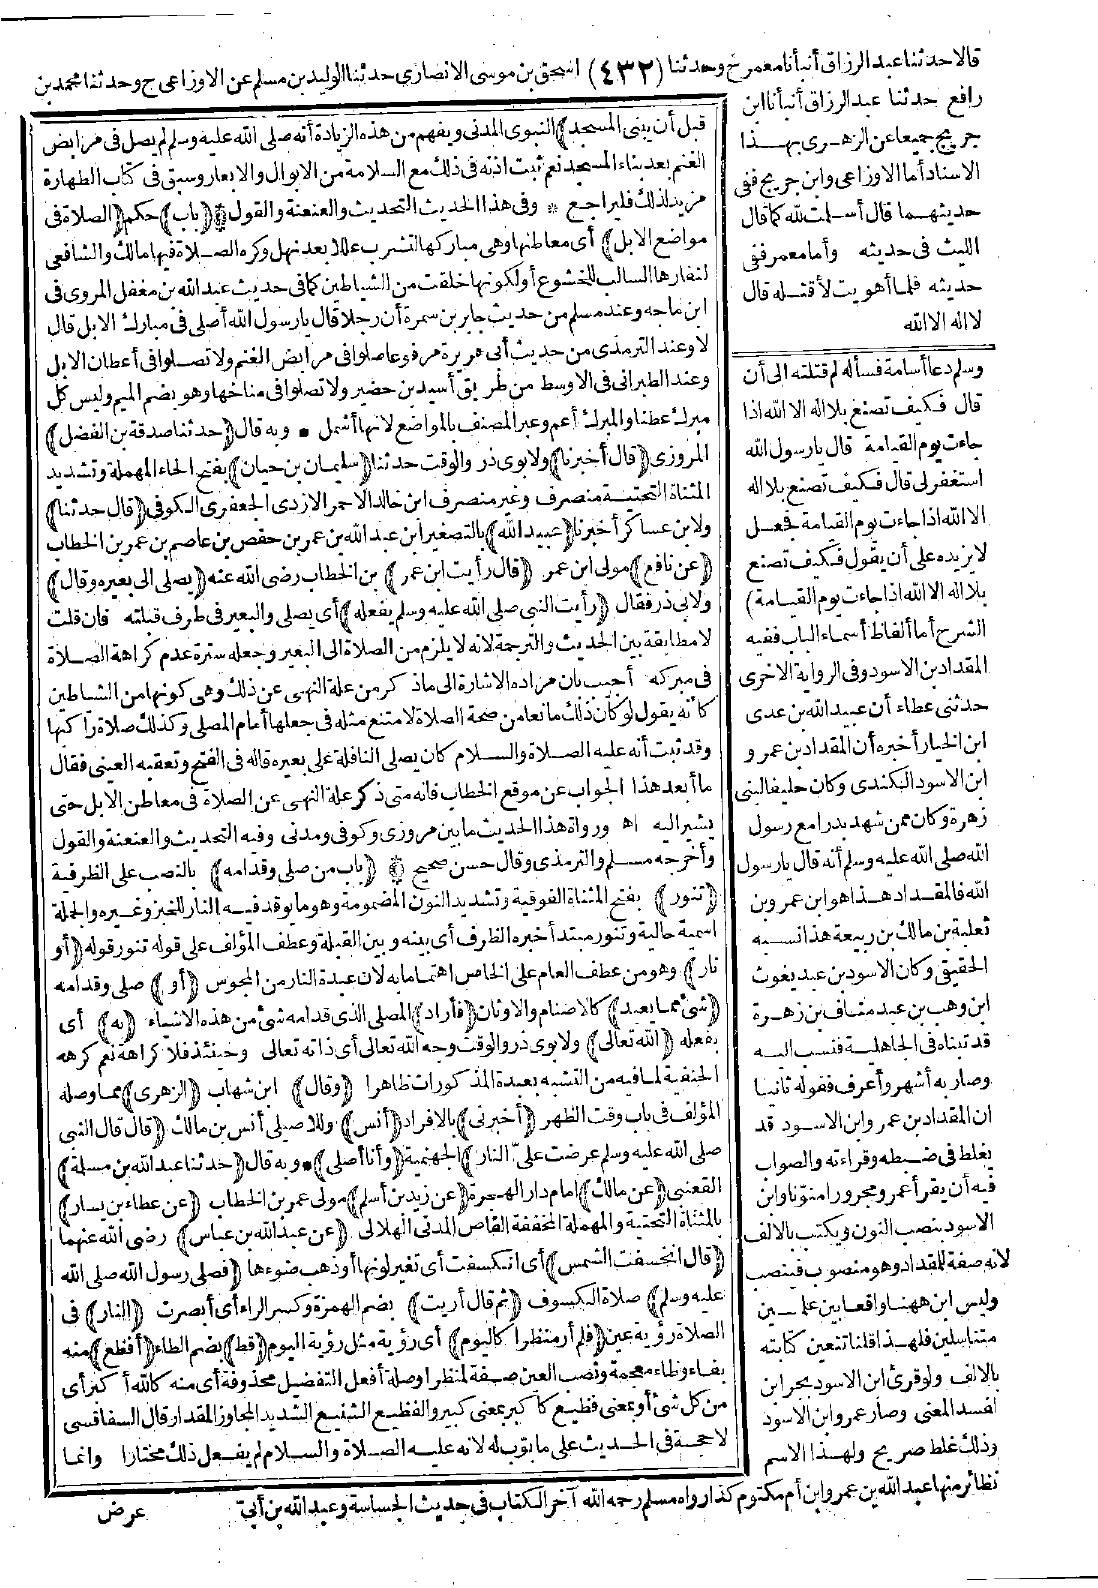 قالا حدثنا عبد الرزاق أنبأنا معمر ح وحدثنا (٤٣٢) اسحق بن موسى الانصاري حدثنا الوليد بن مسلم عن الاوزاعى ح وحدثنا محمد بن
رافع حدثنا عبد الرزاق أنبأنا ابن
جريج جميعا عن الزهرى بهذا
الاسناد أما الاوزاعى وابن جريج ففى
حديثهما قال أسلمت لله كما قال
الليث فى حديثه وأما معمر ففى
حديثه فلما أهويت لأقتله قال
لا اله الا الله
وسلم دعا أسامة فسأله لم قتلته الى أن
قال فكيف تصنع بلا اله الا الله اذا
جاءت يوم القيامة قال يا رسول الله
استغفر لى قال فكيف تصنع بلا اله
الا الله اذا جاءت يوم القيامة فجعل
لا يزيده على أن يقول فكيف تصنع
بلا اله الا الله اذا جاءت يوم القيامة)
الشرح أما ألفاظ أسماء الباب ففيه
المقداد بن الاسود وفى الرواية الاخرى
حدثنى عطاء أن عبيد الله بن عدى
ابن الخيار أخبره أن المقداد بن عمرو
ابن الاسود الكندى وكان حليفا لبنى
زهرة وكان ممن شهد بدرا مع رسول
الله صلى الله عليه وسلم أنه قال يا رسول
الله فالمقداد هذا هو ابن عمرو بن
ثعلبة بن مالك بن ربيعة هذا نسبه
الحقيقى وكان الاسود بن عبد يغوث
ابن وهب بن عبد مناف بن زهرة
قد تبناه فى الجاهلية فنسب اليه
وصار به أشهر وأعرف فقوله ثانيا
ان المقداد بن عمرو ابن الاسود قد
يغلط فى ضبطه وقراءته والصواب
فيه أن يقرأ عمرو مجرورا منونا وابن
الاسود بنصب النون ويكتب بالالف
لانه صفة للمقداد وهو منصوب فينصب
وليس ابن ههنا واقعا بين علمين
متناسلين فلهذا قلنا تتعين كتابته
بالالف ولو قرئ ابن الاسود بجر ابن
لفسد المعنى وصار عمرو ابن الاسود
وذلك غلط صريح ولهذا الاسم
نظائر منها عبد الله بن عمرو ابن أم مكتوم كذا رواه مسلم رحمه الله آخر الكتاب فى حديث الجساسة وعبد الله بن أبى
قبل أن يبنى المسجد) النبوى المدنى ويفهم من هذه الزيادة أنه صلى الله عليه وسلم لم يصل فى مرابض
الغنم بعد بناء المسجد نعم ثبت اذنه فى ذلك مع السلامة من الابوال والابعار وسبق فى كتاب الطهارة
مزيد لذلك فليراجع * وفى هذا الحديث التحديث والعنعنة والقول * (باب) حكم (الصلاة فى
مواضع الابل) أى معاطنها وهى مباركها لتشرب عللا بعد نهل وكره الصلاة فيها مالك والشافعى
لنفارها السالب للخشوع أو لكونها خلقت من الشياطين كما فى حديث عبد الله بن مغفل المروى فى
ابن ماجه وعند مسلم من حديث جابر بن سمرة أن رجلا قال يا رسول الله أصلى فى مبارك الابل قال
لا وعند الترمذى من حديث أبى هريرة مرفوعا صلوا فى مرابض الغنم ولا تصلوا فى أعطان الابل
وعند الطبرانى فى الاوسط من طريق أسيد بن حضير ولا تصلوا فى مناخها وهو بضم الميم وليس كل
مبرك عطنا والمبرك أعم وعبر المصنف بالمواضع لانها أشمل * وبه قال (حدثنا صدقة بن الفضل)
المروزى (قال أخبرنا) ولابوى ذر والوقت حدثنا (سليمان بن حيان) بفتح الحاء المهملة وتشديد
المثناة التحتية منصرف وغير منصرف ابن خالد الاحمر الازدى الجعفرى الكوفى (قال حدثنا)
ولابن عساكر أخبرنا (عبيد الله) بالتصغير ابن عبد الله بن عمر بن حفص بن عاصم بن عمر بن الخطاب
(عن نافع) مولى ابن عمر (قال رأيت ابن عمر) بن الخطاب رضى الله عنه (يصلى الى بعيره وقال)
ولابى ذر فقال (رأيت النبى صلى الله عليه وسلم يفعله) أى يصلى والبعير فى طرف قبلته فان قلت
لا مطابقة بين الحديث والترجمة لانه لا يلزم من الصلاة الى البعير وجعله سترة عدم كراهة الصلاة
فى مبركه أجيب بان مراده الاشارة الى ما ذكر من علة النهى عن ذلك وهى كونها من الشياطين
كأنه يقول لو كان ذلك مانعا من صحة الصلاة لامتنع مثله فى جعلها أمام المصلى وكذلك صلاة راكبها
وقد ثبت أنه عليه الصلاة والسلام كان يصلى النافلة على بعيره قاله فى الفتح وتعقبه العينى فقال
ما أبعد هذا الجواب عن موقع الخطاب فانه متى ذكر علة النهى عن الصلاة فى معاطن الابل حتى
يشير اليه اه ورواة هذا الحديث ما بين مروزى وكوفى ومدنى وفيه التحديث والعنعنة والقول
وأخرجه مسلم والترمذى وقال حسن صحيح * (باب من صلى وقدامه) بالنصب على الظرفية
(تنور) بفتح المثناة الفوقية وتشديد النون المضمومة وهو ما يوقد فيه النار للخبز وغيره والجملة
اسمية حالية وتنور مبتدأ خبره الظرف أى بينه وبين القبلة وعطف المؤلف على قوله تنور قوله (أو
نار) وهو من عطف العام على الخاص اهتماما به لان عبدة النار من المجوس (أو) صلى وقدامه
(شئ مما يعبد) كالاصنام والاوثان (فأراد) المصلى الذى قدامه شئ من هذه الاشياء (به) أى
بفعله (الله تعالى) ولابوى ذر والوقت وجه الله تعالى أى ذاته تعالى وحينئذ فلا كراهة نعم كرهه
الحنفية لما فيه من التشبه بعبدة المذكورات ظاهرا (وقال) ابن شهاب (الزهرى) مما وصله
المؤلف فى باب وقت الظهر (أخبرنى) بالافراد (أنس) وللاصيلى أنس بن مالك (قال قال النبى
صلى الله عليه وسلم عرضت علىّ النار) الجهنمية (وأنا أصلى) * وبه قال (حدثنا عبد الله بن مسلمة)
القعنبى (عن مالك) امام دار الهجرة (عن زيد بن أسلم) مولى عمر بن الخطاب (عن عطاء بن يسار)
بالمثناة التحتية والمهملة المخففة القاص المدنى الهلالى (عن عبد الله بن عباس) رضى الله عنهما
(قال انخسفت الشمس) أى انكسفت أى تغير لونها أو ذهب ضوءها (فصلى رسول الله صلى الله
عليه وسلم) صلاة الكسوف (ثم قال أريت) بضم الهمزة وكسر الراء أى أبصرت (النار) فى
الصلاة رؤية عين (فلم أر منظرا كاليوم) أى رؤية مثل رؤية اليوم (قط) بضم الطاء (أفظع) منه
بفاء وظاء معجمة ونصب العين صفة لمنظرا وصلة أفعل التفضيل محذوفة أى منه كالله أكبر أى
من كل شئ أو بمعنى فظيع كأكبر بمعنى كبير والفظيع الشنيع الشديد المجاوز المقدار قال السفاقسى
لا حجة فى الحديث على ما بوب له لانه عليه الصلاة والسلام لم يفعل ذلك مختارا وانما
عرض